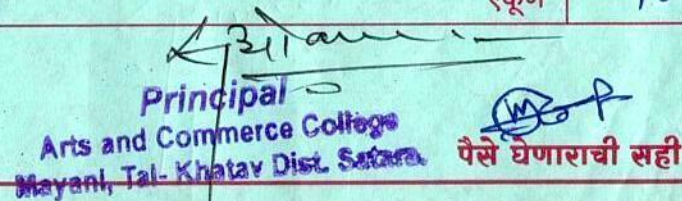 एकूण
Principal
Arts and Commerce College
Mayani, Tal- Khatav Dist. Satara.
पैसे घेणाराची सही